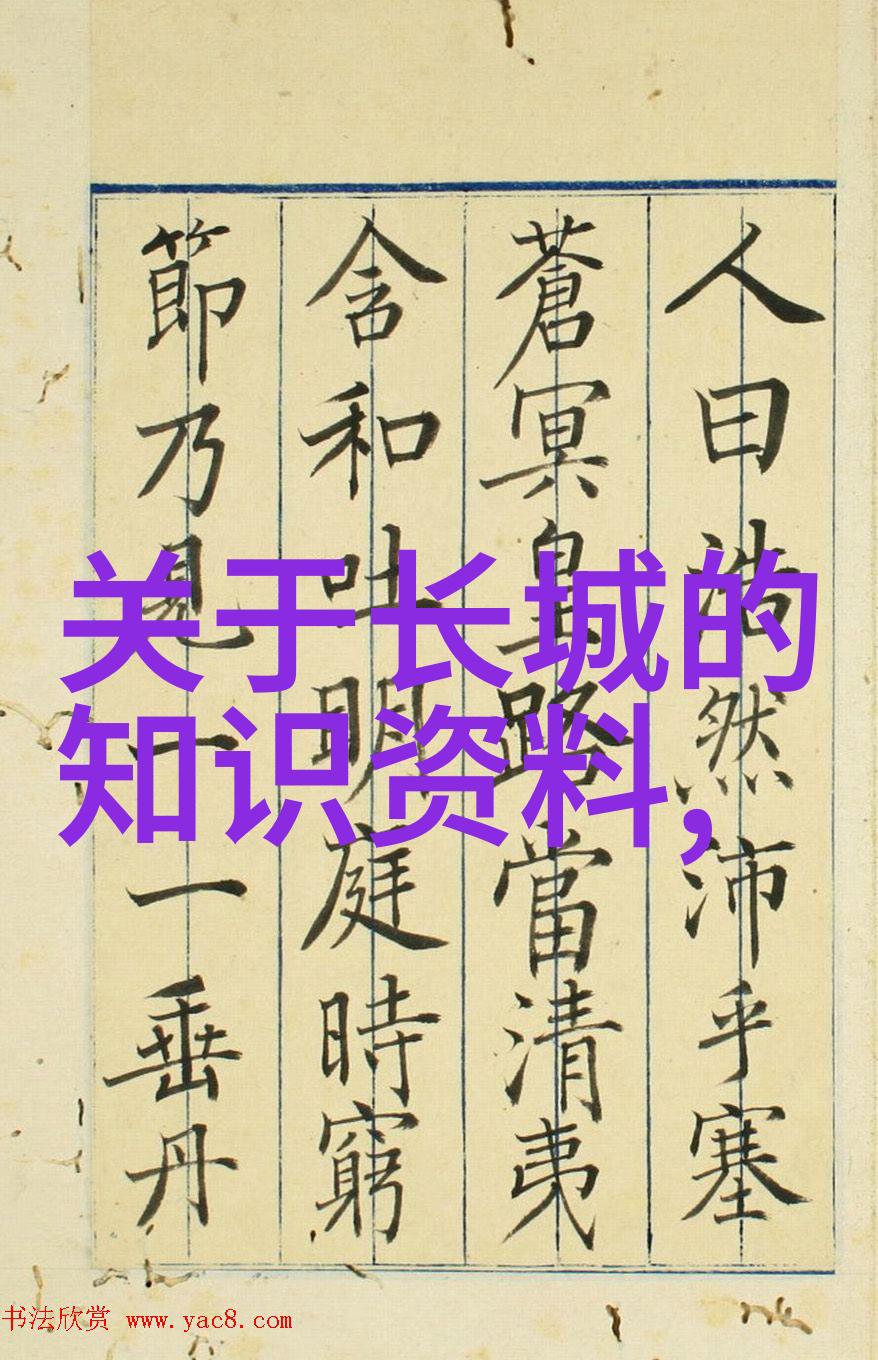 人曰浩然沛乎塞
蒼冥皇路當清夷
含和吐明庭時窮
節乃見一一垂丹
关于长城的
知识资料,
书法欣赏 www.yac8.com